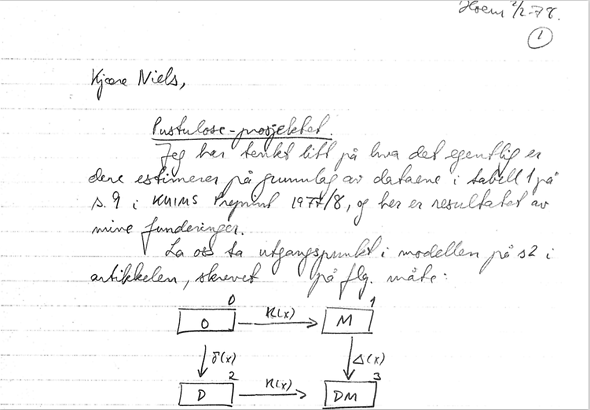 Hoem 2/2-78.
1
Kjære Niels,
Pustulose-prosjektet.
Jeg har tenkt litt på hva det egentlig er
dere estimerer på grunnlag av dataene i tabell 1 på
s. 9 i KUIMS Preprint 1977/8, og her er resultatet av
mine funderinger.
La oss ta utgangspunkt i modellen på s2 i
artikkelen, skrevet på flg. måte:
0 1
O κ(x) M
δ(x) Δ(x)
2 3
D κ(x) DM